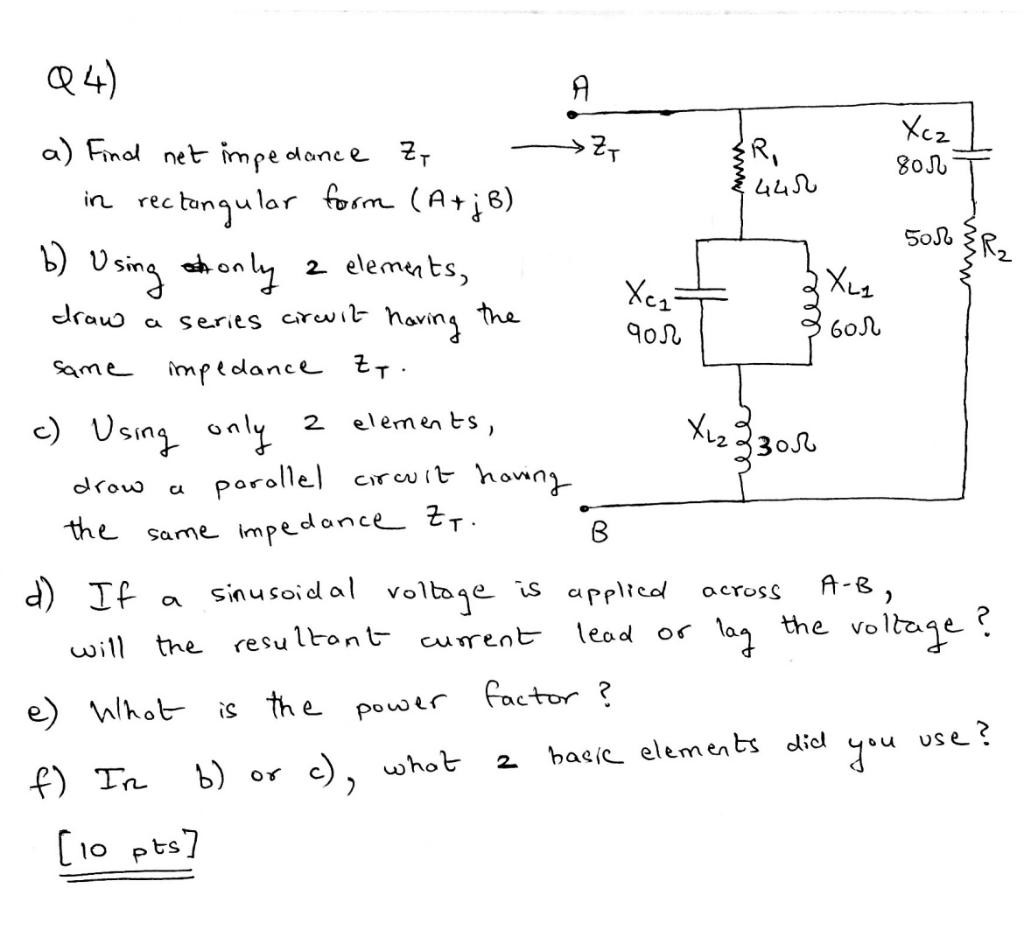 Q4)
a) Find net impedance ZT
in rectangular form (A+jB)
b) Using only 2 elements,
draw a series circuit having the
same impedance ZT.
c) Using only 2 elements,
draw a parallel circuit having
the same impedance ZT.
A
→ZT
R1
44Ω
XC2
80Ω
50Ω R2
XC1
90Ω
XL1
60Ω
XL2 30Ω
B
d) If a sinusoidal voltage is applied across A-B,
will the resultant current lead or lag the voltage?
e) What is the power factor?
f) In b) or c), what 2 basic elements did you use?
[10 pts]